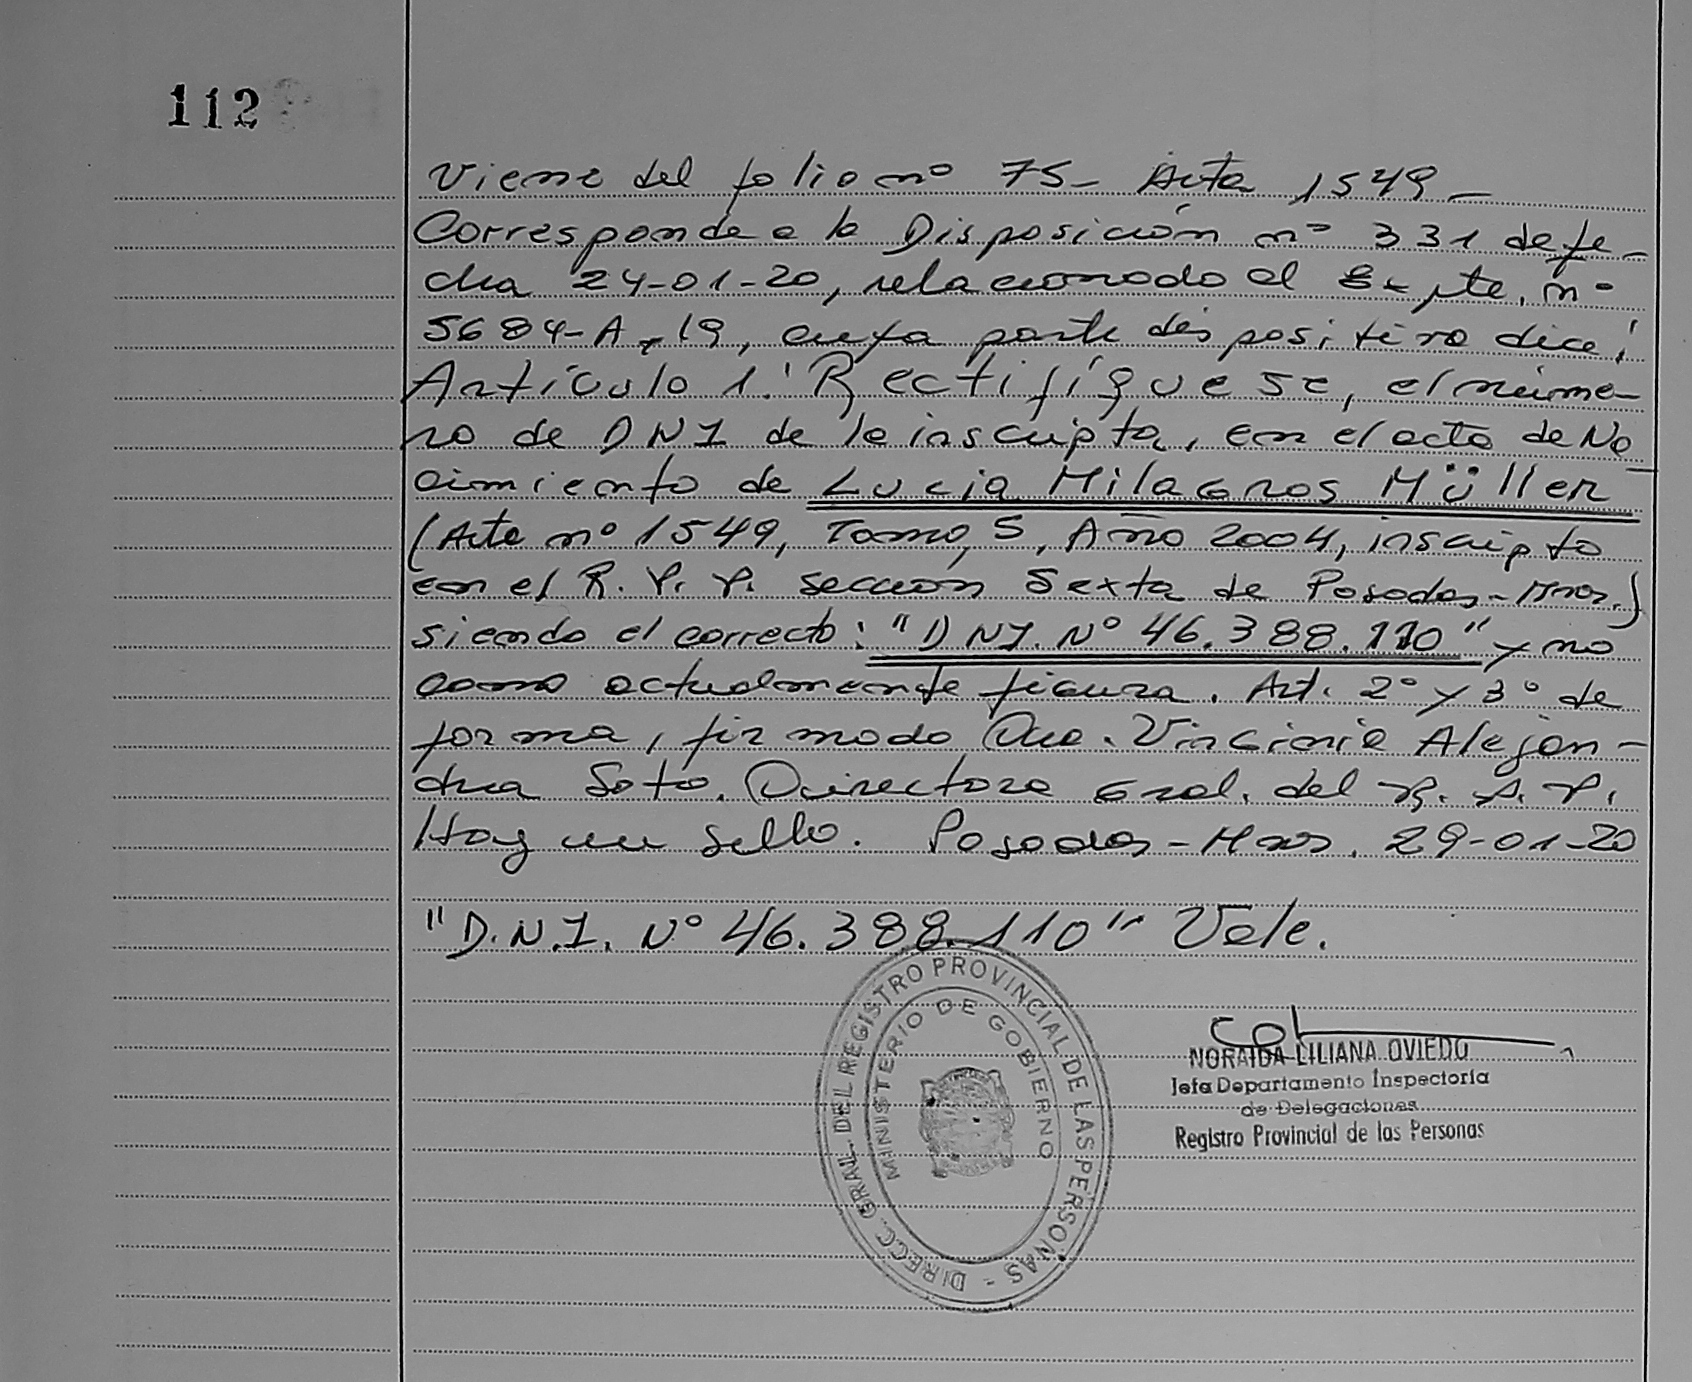 112
Viene del folio nº 75- Acta 1549-
Corresponde a la Disposición nº 331 de fe-
cha 24-01-20, relacionado al Expte. nº
5684-A-19, cuya parte dispositiva dice:
Artículo 1: Rectifíquese, el núme-
ro de DNI de la inscripta, en el acta de Na
cimiento de Lucia Milagros Müller
(Acta nº 1549, Tomo, 5, Año 2004, inscripta
en el R. P. P. sección Sexta de Posadas-Mnes.)
siendo el correcto: "DNI. Nº 46.388.110" y no
como actualmente figura. Art. 2º y 3º de
forma, firmado Dra. Virginia Alejan-
dra Soto. Directora Gral. del R. P. P.
Hay un sello. Posadas-Mnes. 29-01-20
"D.N.I. Nº 46.388.110" Vale.
DIRECC. GRAL. DEL REGISTRO PROVINCIAL DE LAS PERSONAS -
MINISTERIO DE GOBIERNO
NORAIDA LILIANA OVIEDO
Jefa Departamento Inspectoría
de Delegaciones
Registro Provincial de las Personas